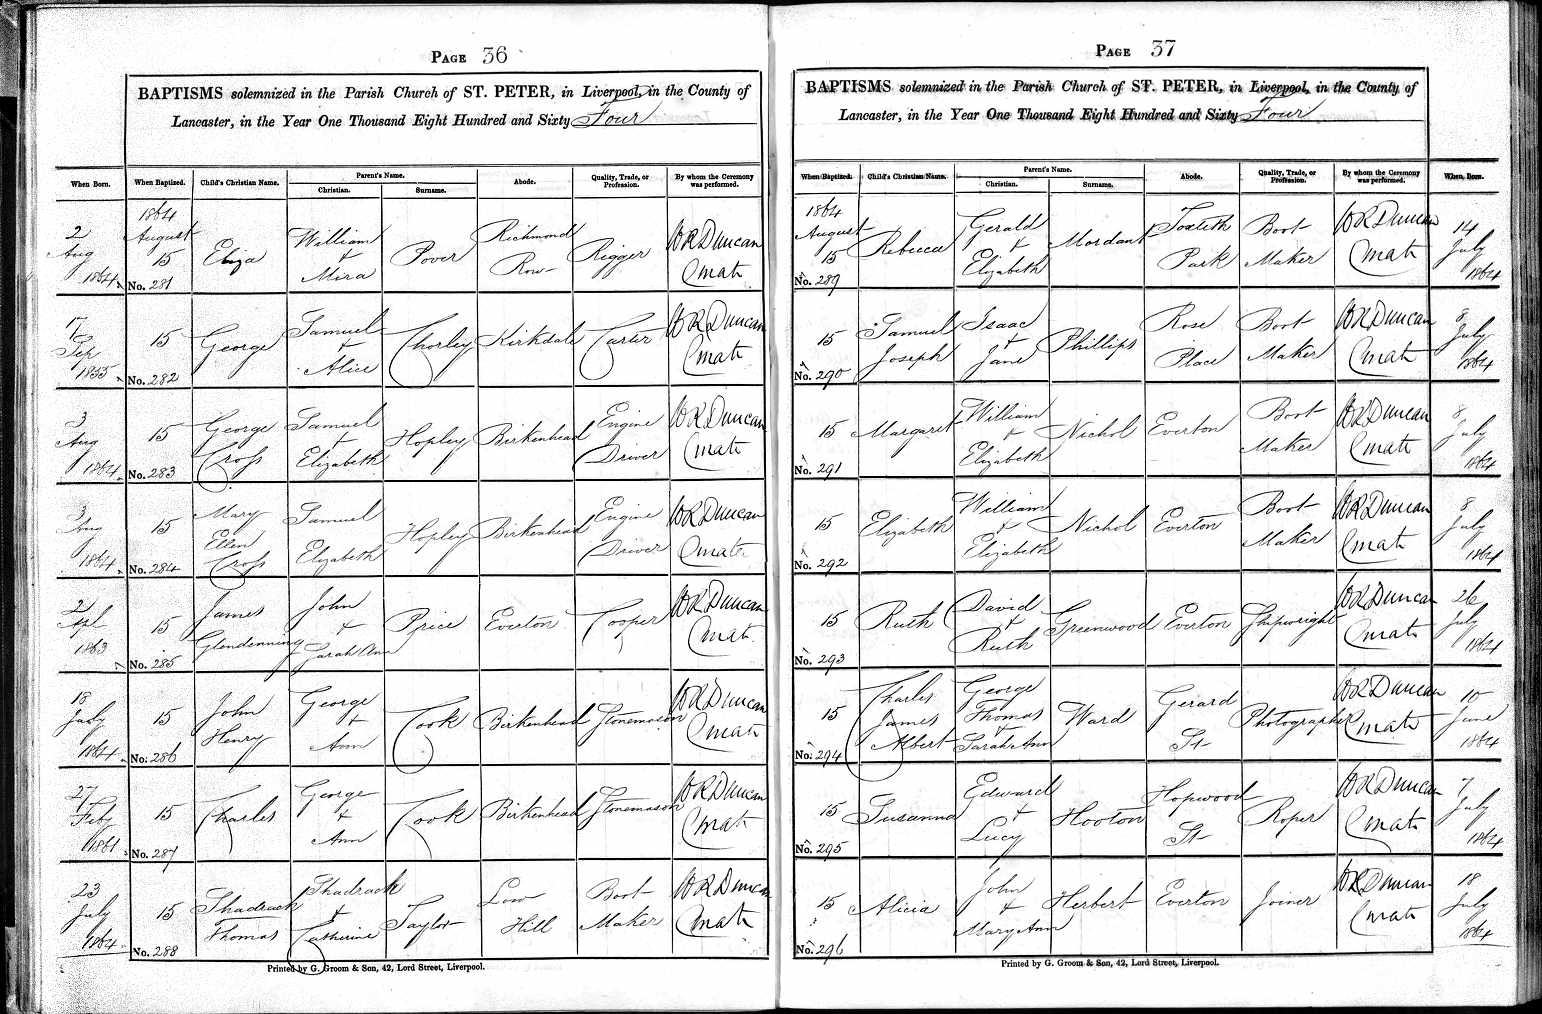 PAGE 36
BAPTISMS solemnized in the Parish Church of ST. PETER, in Liverpool, in the County of
Lancaster, in the Year One Thousand Eight Hundred and Sixty Four
When Born. When Baptized. Child's Christian Name. Parent's Name. Christian. Surname. Abode. Quality, Trade, or Profession. By whom the Ceremony was performed.
2 Aug 1864 1864 August 15 No. 281 Eliza William & Mira Pover Richmond Row Rigger W R Duncan Curate
17 Sep 1855 15 No. 282 George Samuel & Alice Chorley Kirkdale Carter W R Duncan Curate
3 Aug 1864 15 No. 283 George Cross Samuel & Elizabeth Hopley Birkenhead Engine Driver W R Duncan Curate
3 Aug 1864 15 No. 284 Mary Ellen Cross Samuel Elizabeth Hopley Birkenhead Engine Driver W R Duncan Curate
2 Apl 1863 15 No. 285 James Glendenning John & Sarah Ann Price Everton Cooper W R Duncan Curate
18 July 1864 15 No. 286 John Henry George & Ann Cook Birkenhead Stonemason W R Duncan Curate
27 Feby 1861 15 No. 287 Charles George & Ann Cook Birkenhead Stonemason W R Duncan Curate
23 July 1864 15 No. 288 Shadrack Thomas Shadrack & Catherine Taylor Low Hill Boot Maker W R Duncan Curate
Printed by G. Groom & Son, 42, Lord Street, Liverpool.
PAGE 37
BAPTISMS solemnized in the Parish Church of ST. PETER, in Liverpool, in the County of
Lancaster, in the Year One Thousand Eight Hundred and Sixty Four
When Baptized. Child's Christian Name. Parent's Name. Christian. Surname. Abode. Quality, Trade, or Profession. By whom the Ceremony was performed. When Born.
1864 August 15 No. 289 Rebecca Gerald & Elizabeth Mordant Toxteth Park Boot Maker W R Duncan Curate 14 July 1864
15 No. 290 Samuel Joseph Isaac & Jane Phillips Rose Place Boot Maker W R Duncan Curate 8 July 1864
15 No. 291 Margaret William & Elizabeth Nichol Everton Boot Maker W R Duncan Curate 8 July 1864
15 No. 292 Elizabeth William & Elizabeth Nichol Everton Boot Maker W R Duncan Curate 8 July 1864
15 No. 293 Ruth David & Ruth Greenwood Everton Shipwright W R Duncan Curate 26 July 1864
15 No. 294 Charles James Albert George Thomas & Sarah Ann Ward Gerard St Photographer W R Duncan Curate 10 June 1864
15 No. 295 Susanna Edward & Lucy Hooton Hopwood St Roper W R Duncan Curate 7 July 1864
15 No. 296 Alicia John & Mary Ann Herbert Everton Joiner W R Duncan Curate 18 July 1864
Printed by G. Groom & Son, 42, Lord Street, Liverpool.